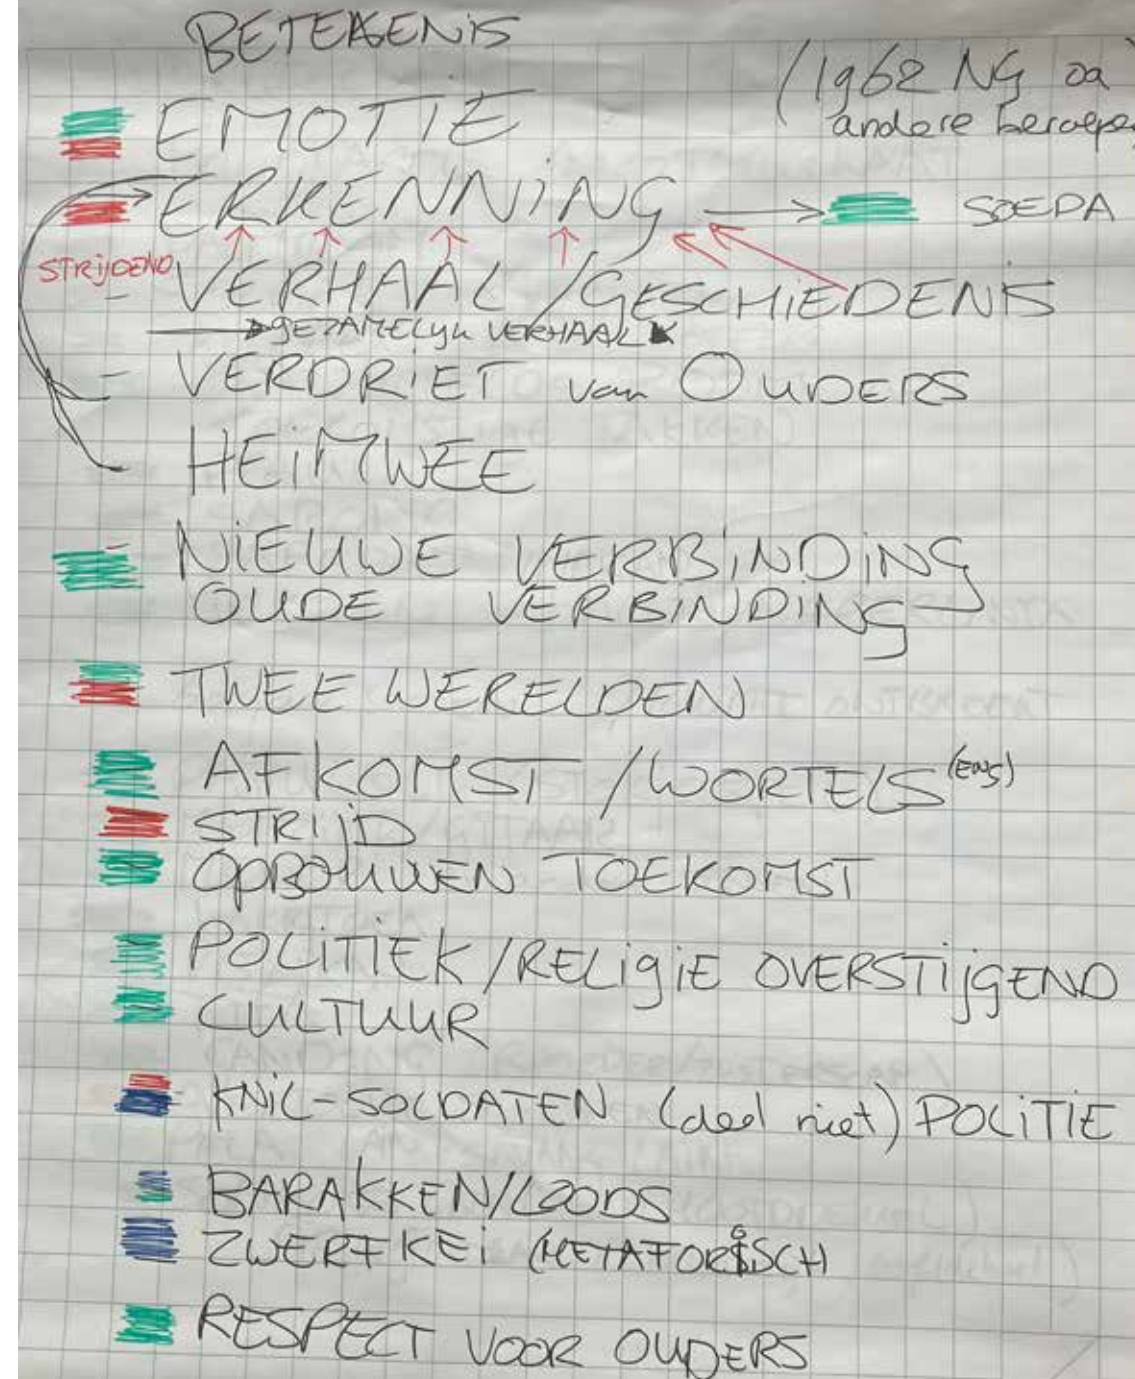 BETEKENIS
(1962 NG oa
andere beroepen
EMOTIE
ERKENNING → SOEDA
STRIJDEND
- VERHAAL / GESCHIEDENIS
GEZAMELYK VERHAAL
- VERDRIET van OUDERS
- HEIMWEE
- NIEUWE VERBINDING
OUDE VERBINDING
TWEE WERELDEN
AFKOMST / WORTELS (ENG)
STRIJD
OPBOUWEN TOEKOMST
POLITIEK / RELIGIE OVERSTIJGEND
CULTUUR
KNIL-SOLDATEN (deel niet) POLITIE
BARAKKEN/LOODS
ZWERFKEI (METAFORISCH
RESPECT VOOR OUDERS